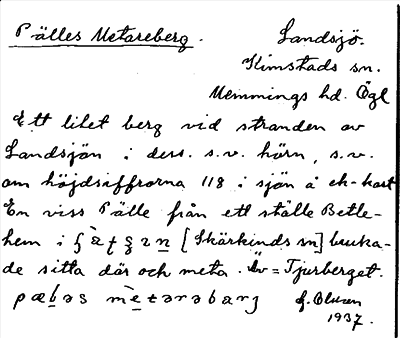 Pälles Metareberg.
Landsjö.
Kimstads sn.
Memmings hd. Ögl
Ett litet berg vid stranden av
Landsjön i dess s.v. hörn, s.v.
om höjdsiffrorna 118 i sjön å ek-kart
En viss Pälle från ett ställe Betle-
hem i [Skärkinds sn] bruka-
de sitta där och meta. Äv = Tjurberget.
1937.